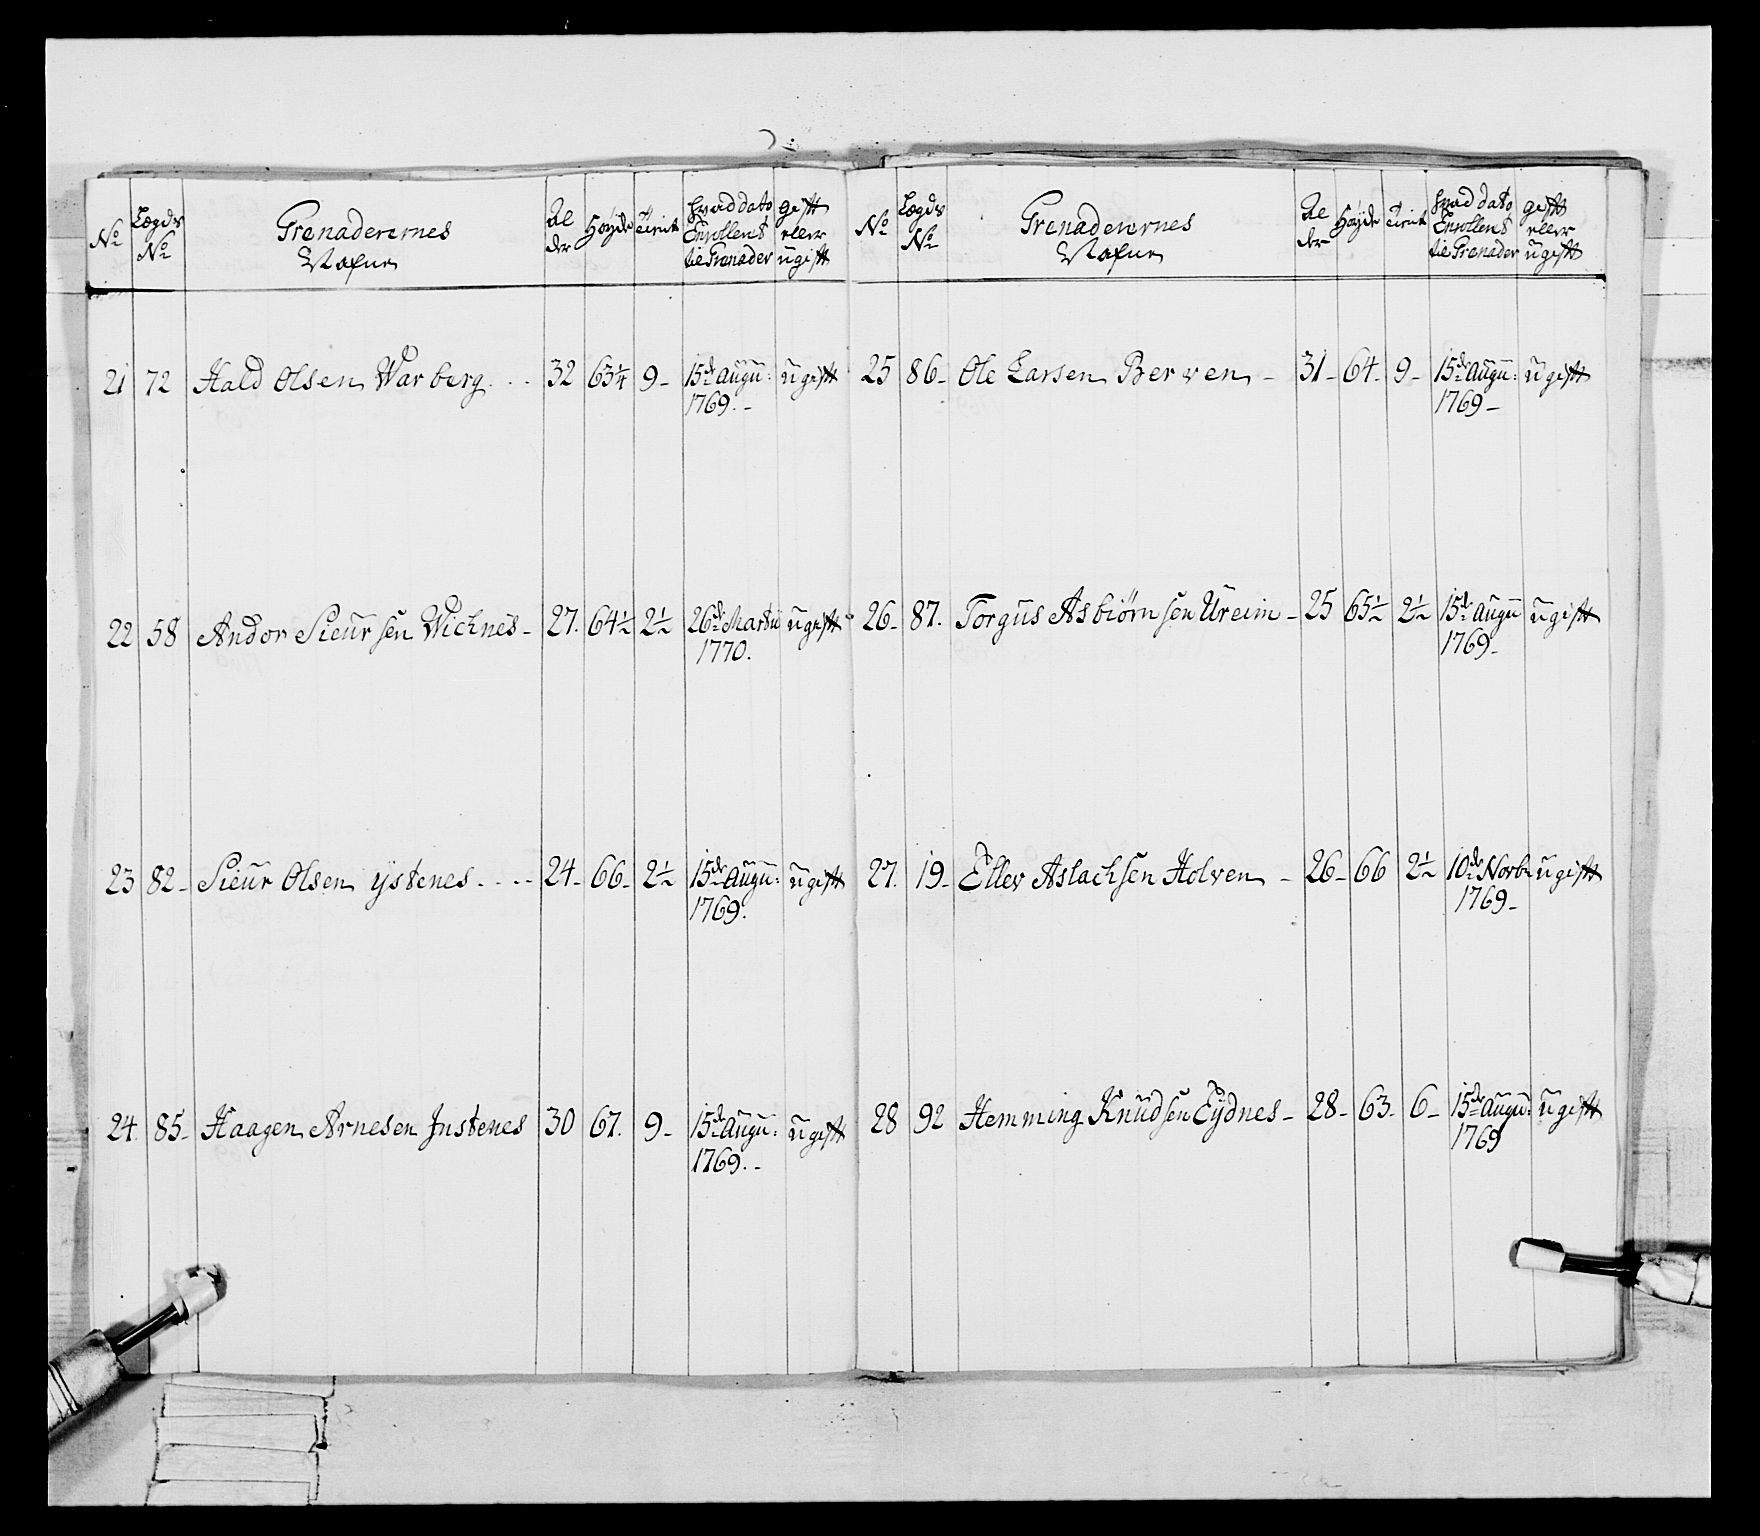 No Lægds No Grenaderernes Nafne Alder Høyde tient hvad dato Enrollert til Grenader gift eller ugift
21 72 Hald Olsen Warberg . . . 32 63¼ 9- 15de Augu: 1769.- ugift
22 58 Andor Sieursen Wichnes - 27. 64½ 2½ 26de Martii 1770. ugift
23 82- Sieur Olsen ystenes . . . . 24- 66- 2½ 15de Augu: 1769. ugift
24. 85- Haagen Arnesen Instenes 30 67. 9- 15de Augu: 1769.- ugift
No Lægds No Grenaderernes Nafne Alder Høyde tient hvad dato Enrollert til Grenader gift eller ugift
25 86- Ole Larsen Berven - 31- 64- 9- 15de Augu: 1769- ugift
26- 87. Torgus Asbiørnsen Ureim - 25 65½ 2½ 15de Augu 1769- ugift
27. 19- Ellev Aslachsen Holven - 26- 66 2½ 10de Novb- 1769- ugift
28 92 Hemming Knudsen Eydnes - 28- 63- 6- 15de Augu: 1769 ugift